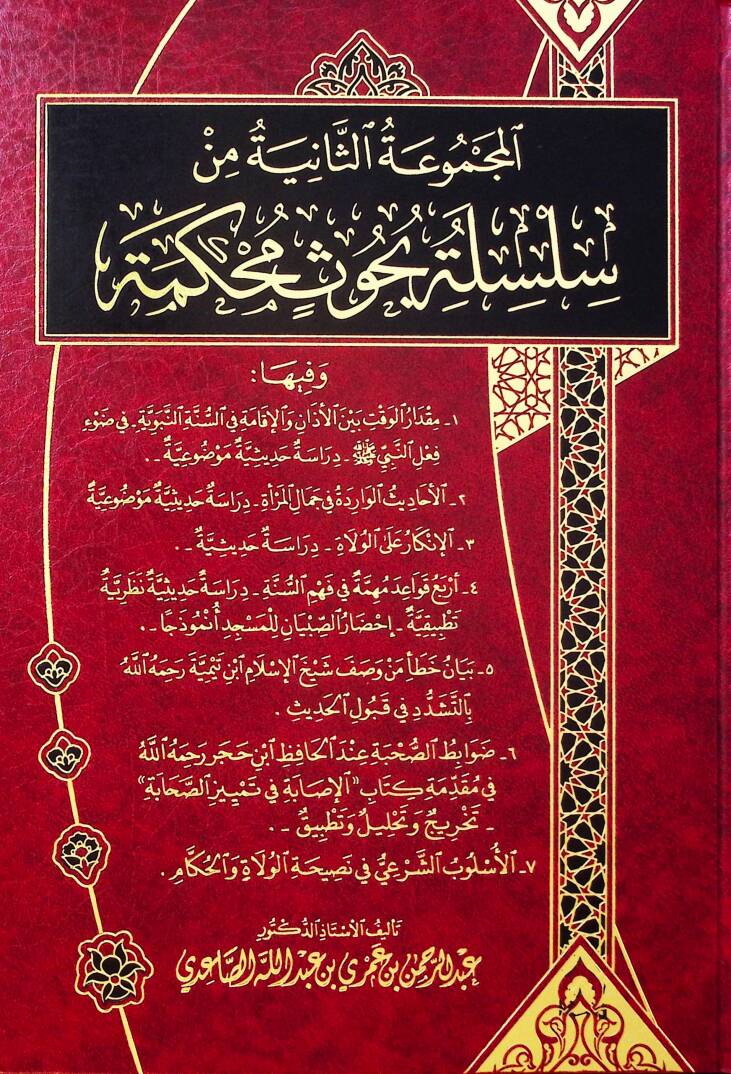 المَجْمُوعَةُ الثَّانِيَةُ مِنْ
سِلْسِلَةِ بُحُوثٍ مُحْكَمَةٍ
وَفِيهَا:
١- مِقْدَارُ الوَقْتِ بَيْنَ الأَذَانِ وَالإِقَامَةِ فِي السُّنَّةِ النَّبَوِيَّةِ - فِي ضَوْءِ
فِعْلِ النَّبِيِّ ﷺ - دِرَاسَةٌ حَدِيثِيَّةٌ مَوْضُوعِيَّةٌ - .
٢- الأَحَادِيثُ الوَارِدَةُ فِي جَمَالِ المَرْأَةِ - دِرَاسَةٌ حَدِيثِيَّةٌ مَوْضُوعِيَّةٌ
٣- الإِنْكَارُ عَلَى الوُلَاةِ - دِرَاسَةٌ حَدِيثِيَّةٌ - .
٤- أَرْبَعُ قَوَاعِدَ مُهِمَّةٍ فِي فَهْمِ السُّنَّةِ - دِرَاسَةٌ حَدِيثِيَّةٌ نَظَرِيَّةٌ
تَطْبِيقِيَّةٌ - إِحْضَارُ الصِّبْيَانِ لِلْمَسْجِدِ أُنْمُوذَجًا - .
٥- بَيَانُ خَطَأِ مَنْ وَصَفَ شَيْخَ الإِسْلَامِ ابْنَ تَيْمِيَّةَ رَحِمَهُ اللَّهُ
بِالتَّشَدُّدِ فِي قَبُولِ الحَدِيثِ .
٦- ضَوَابِطُ الصُّحْبَةِ عِنْدَ الحَافِظِ ابْنِ حَجَرٍ رَحِمَهُ اللَّهُ
فِي مُقَدِّمَةِ كِتَابِ «الإِصَابَةِ فِي تَمْيِيزِ الصَّحَابَةِ»
- تَخْرِيجٌ وَتَحْلِيلٌ وَتَطْبِيقٌ - .
٧- الأُسْلُوبُ الشَّرْعِيُّ فِي نَصِيحَةِ الوُلَاةِ وَالحُكَّامِ .
تَأْلِيفُ الأُسْتَاذِ الدُّكْتُورِ
عبد الرحمن بن عمري بن عبد الله الصاعدي